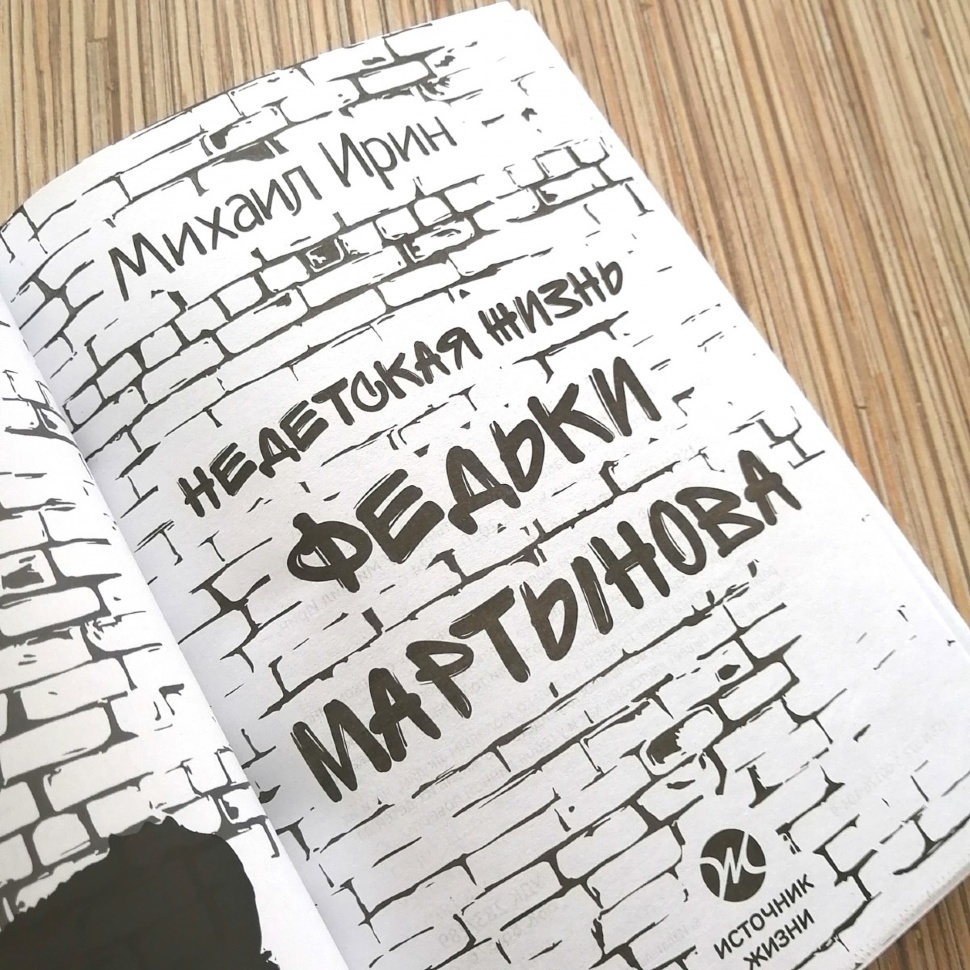 Михаил Ирин
НЕДЕТСКАЯ ЖИЗНЬ
ФЕДЬКИ
МАРТЫНОВА
ИСТОЧНИК
ЖИЗНИ